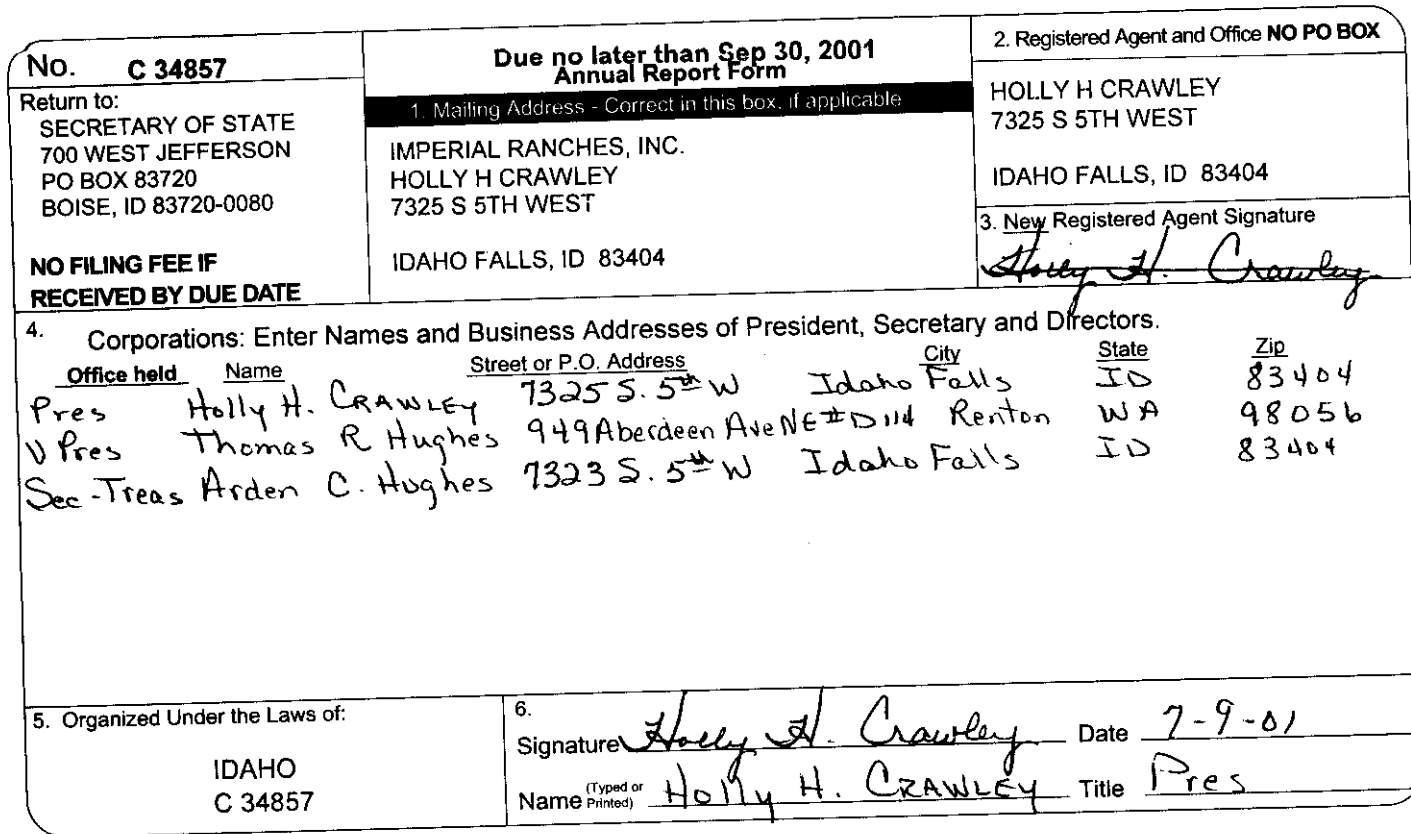 No. C 34857
Return to:
SECRETARY OF STATE
700 WEST JEFFERSON
PO BOX 83720
BOISE, ID 83720-0080
NO FILING FEE IF
RECEIVED BY DUE DATE
Due no later than Sep 30, 2001
Annual Report Form
1. Mailing Address - Correct in this box, if applicable
IMPERIAL RANCHES, INC.
HOLLY H CRAWLEY
7325 S 5TH WEST
IDAHO FALLS, ID 83404
2. Registered Agent and Office NO PO BOX
HOLLY H CRAWLEY
7325 S 5TH WEST
IDAHO FALLS, ID 83404
3. New Registered Agent Signature
Holly H. Crawley
4. Corporations: Enter Names and Business Addresses of President, Secretary and Directors.
Office held Name Street or P.O. Address City State Zip
Pres Holly H. CRAWLEY 7325 S. 5th W Idaho Falls ID 83404
V Pres Thomas R Hughes 949 Aberdeen Ave NE #D114 Renton WA 98056
Sec-Treas Arden C. Hughes 7323 S. 5th W Idaho Falls ID 83404
5. Organized Under the Laws of:
IDAHO
C 34857
6.
Signature Holly H. Crawley Date 7-9-01
Name (Typed or Printed) Holly H. CRAWLEY Title Pres